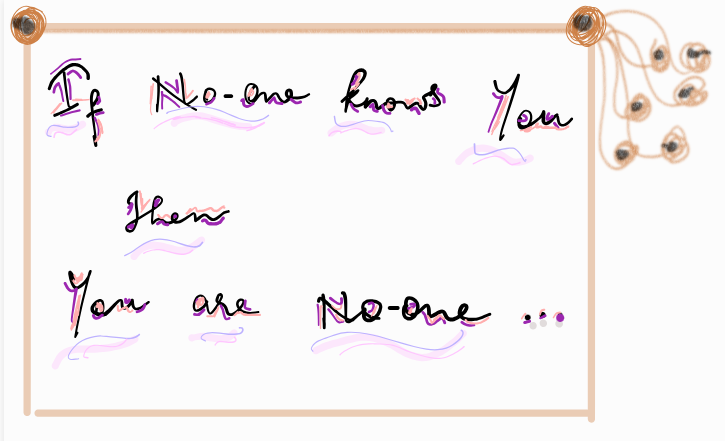 If No-one knows You
Then
You are No-one ...